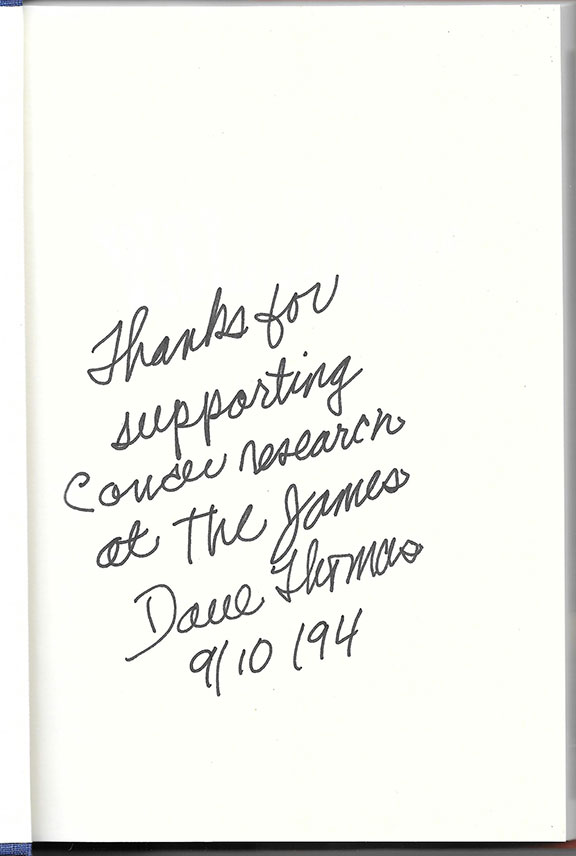 Thanks for
supporting
Cancer research
at The James
Dave Thomas
9/10/94